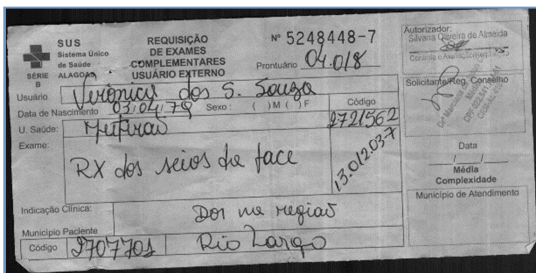 SUS
Sistema Único
de Saúde
SÉRIE ALAGOAS
B
REQUISIÇÃO
DE EXAMES
COMPLEMENTARES
USUÁRIO EXTERNO
Nº 5248448-7
Prontuário 04.018
Autorizador:
Silvana Oliveira de Almeida
Usuário Verônica dos S. Souza
Data de Nascimento 03.04.79 Sexo: ( )M ( )F
Código
2721562
Solicitante/Reg. Conselho
U. Saúde: Mutirão
Exame:
RX dos seios da face
13.012.037
Data
__/__/__
Média
Complexidade
Município de Atendimento
Indicação Clínica: Dor na região
Município Paciente
Código 2707701 Rio Largo